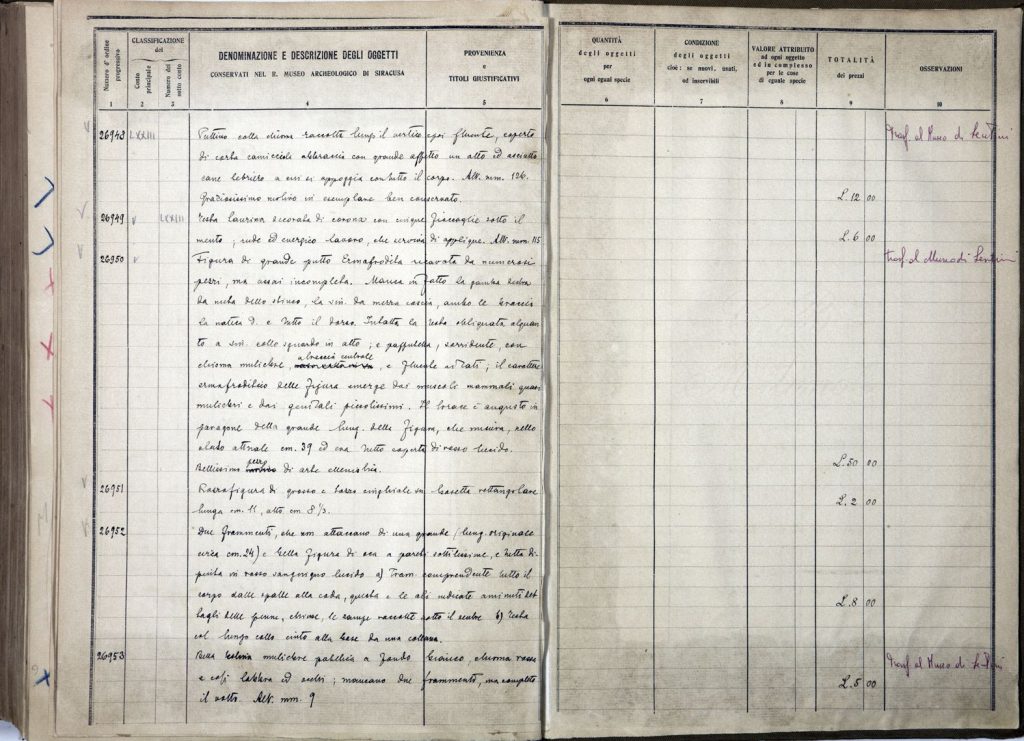 Numero d'ordine progressivo
CLASSIFICAZIONE
del
Conto principale
Numero del sotto conto
DENOMINAZIONE E DESCRIZIONE DEGLI OGGETTI
CONSERVATI NEL R. MUSEO ARCHEOLOGICO DI SIRACUSA
PROVENIENZA
e
TITOLI GIUSTIFICATIVI
1 2 3 4 5
26943 LXXIII Puttino colla chioma raccolta lungo il vertice e poi fluente, coperto
di corta camicciola abbraccia con grande affetto un alto ed asciutto
cane levriero a cui si appoggia con tutto il corpo. Alt. mm. 126.
Graziosissimo motivo in esemplare ben conservato.
26949 LXXIII Testa taurina decorata di corona con cinque sotto il
mento; rude ed energico lavoro, che serviva di applique. Alt. mm. 115
26950 Figura di grande putto Ermafrodita ricavata da numerosi
pezzi, ma assai incompleta. Manca in fatto la gamba destra
da metà dello stinco, la sin. da mezza coscia, ambo le braccia
la natica d. e tutto il dorso. Intatta la testa obliquata alquan
to a sin. collo sguardo in alto; è paffutella, sorridente, con
chioma muliebre, a treccia centrale, e fluente ai lati; il carattere
ermafroditico della figura emerge dai muscoli mammali quasi
muliebri e dai genitali piccolissimi. Il torace è angusto in
paragone della grande lung. della figura, che misura, nello
stato attuale cm. 39 ed era tutta coperta di rosso lucido.
Bellissimo pezzo di arte
26951 Rozza figura di grosso e tozzo cinghiale su basetta rettangolare
lunga cm. 11, alto cm. 8 1/2.
26952 Due frammenti, che non attaccano di una grande (lung. originale
circa cm. 24) e bella figura di oca a pareti sottilissime, e tutta di-
pinta in rosso sanguigno lucido a) Fram. comprendente tutto il
corpo dalle spalle alla coda, questa e le ali indicate a minuti det
tagli delle penne, chiuse, le zampe raccolte sotto il ventre b) testa
col lungo collo cinto alla base da una collana.
26953 Bella testina muliebre a fondo bianco, chioma rossa
e così labbra ed occhi; mancano due frammenti, ma completo
il volto. Alt. mm. 9
QUANTITÀ
degli oggetti
per
ogni egual specie
CONDIZIONE
degli oggetti
cioè: se nuovi, usati,
od inservibili
VALORE ATTRIBUITO
ad ogni oggetto
ed in complesso
per le cose
di eguale specie
TOTALITÀ
dei prezzi
OSSERVAZIONI
6 7 8 9 10
Trasf. al Museo di Lentini
L. 12 00
L. 6 00
trasf. al Museo di Lentini
L. 50 00
L. 2 00
L. 8 00
Trasf. al Museo di Lentini
L. 5 00